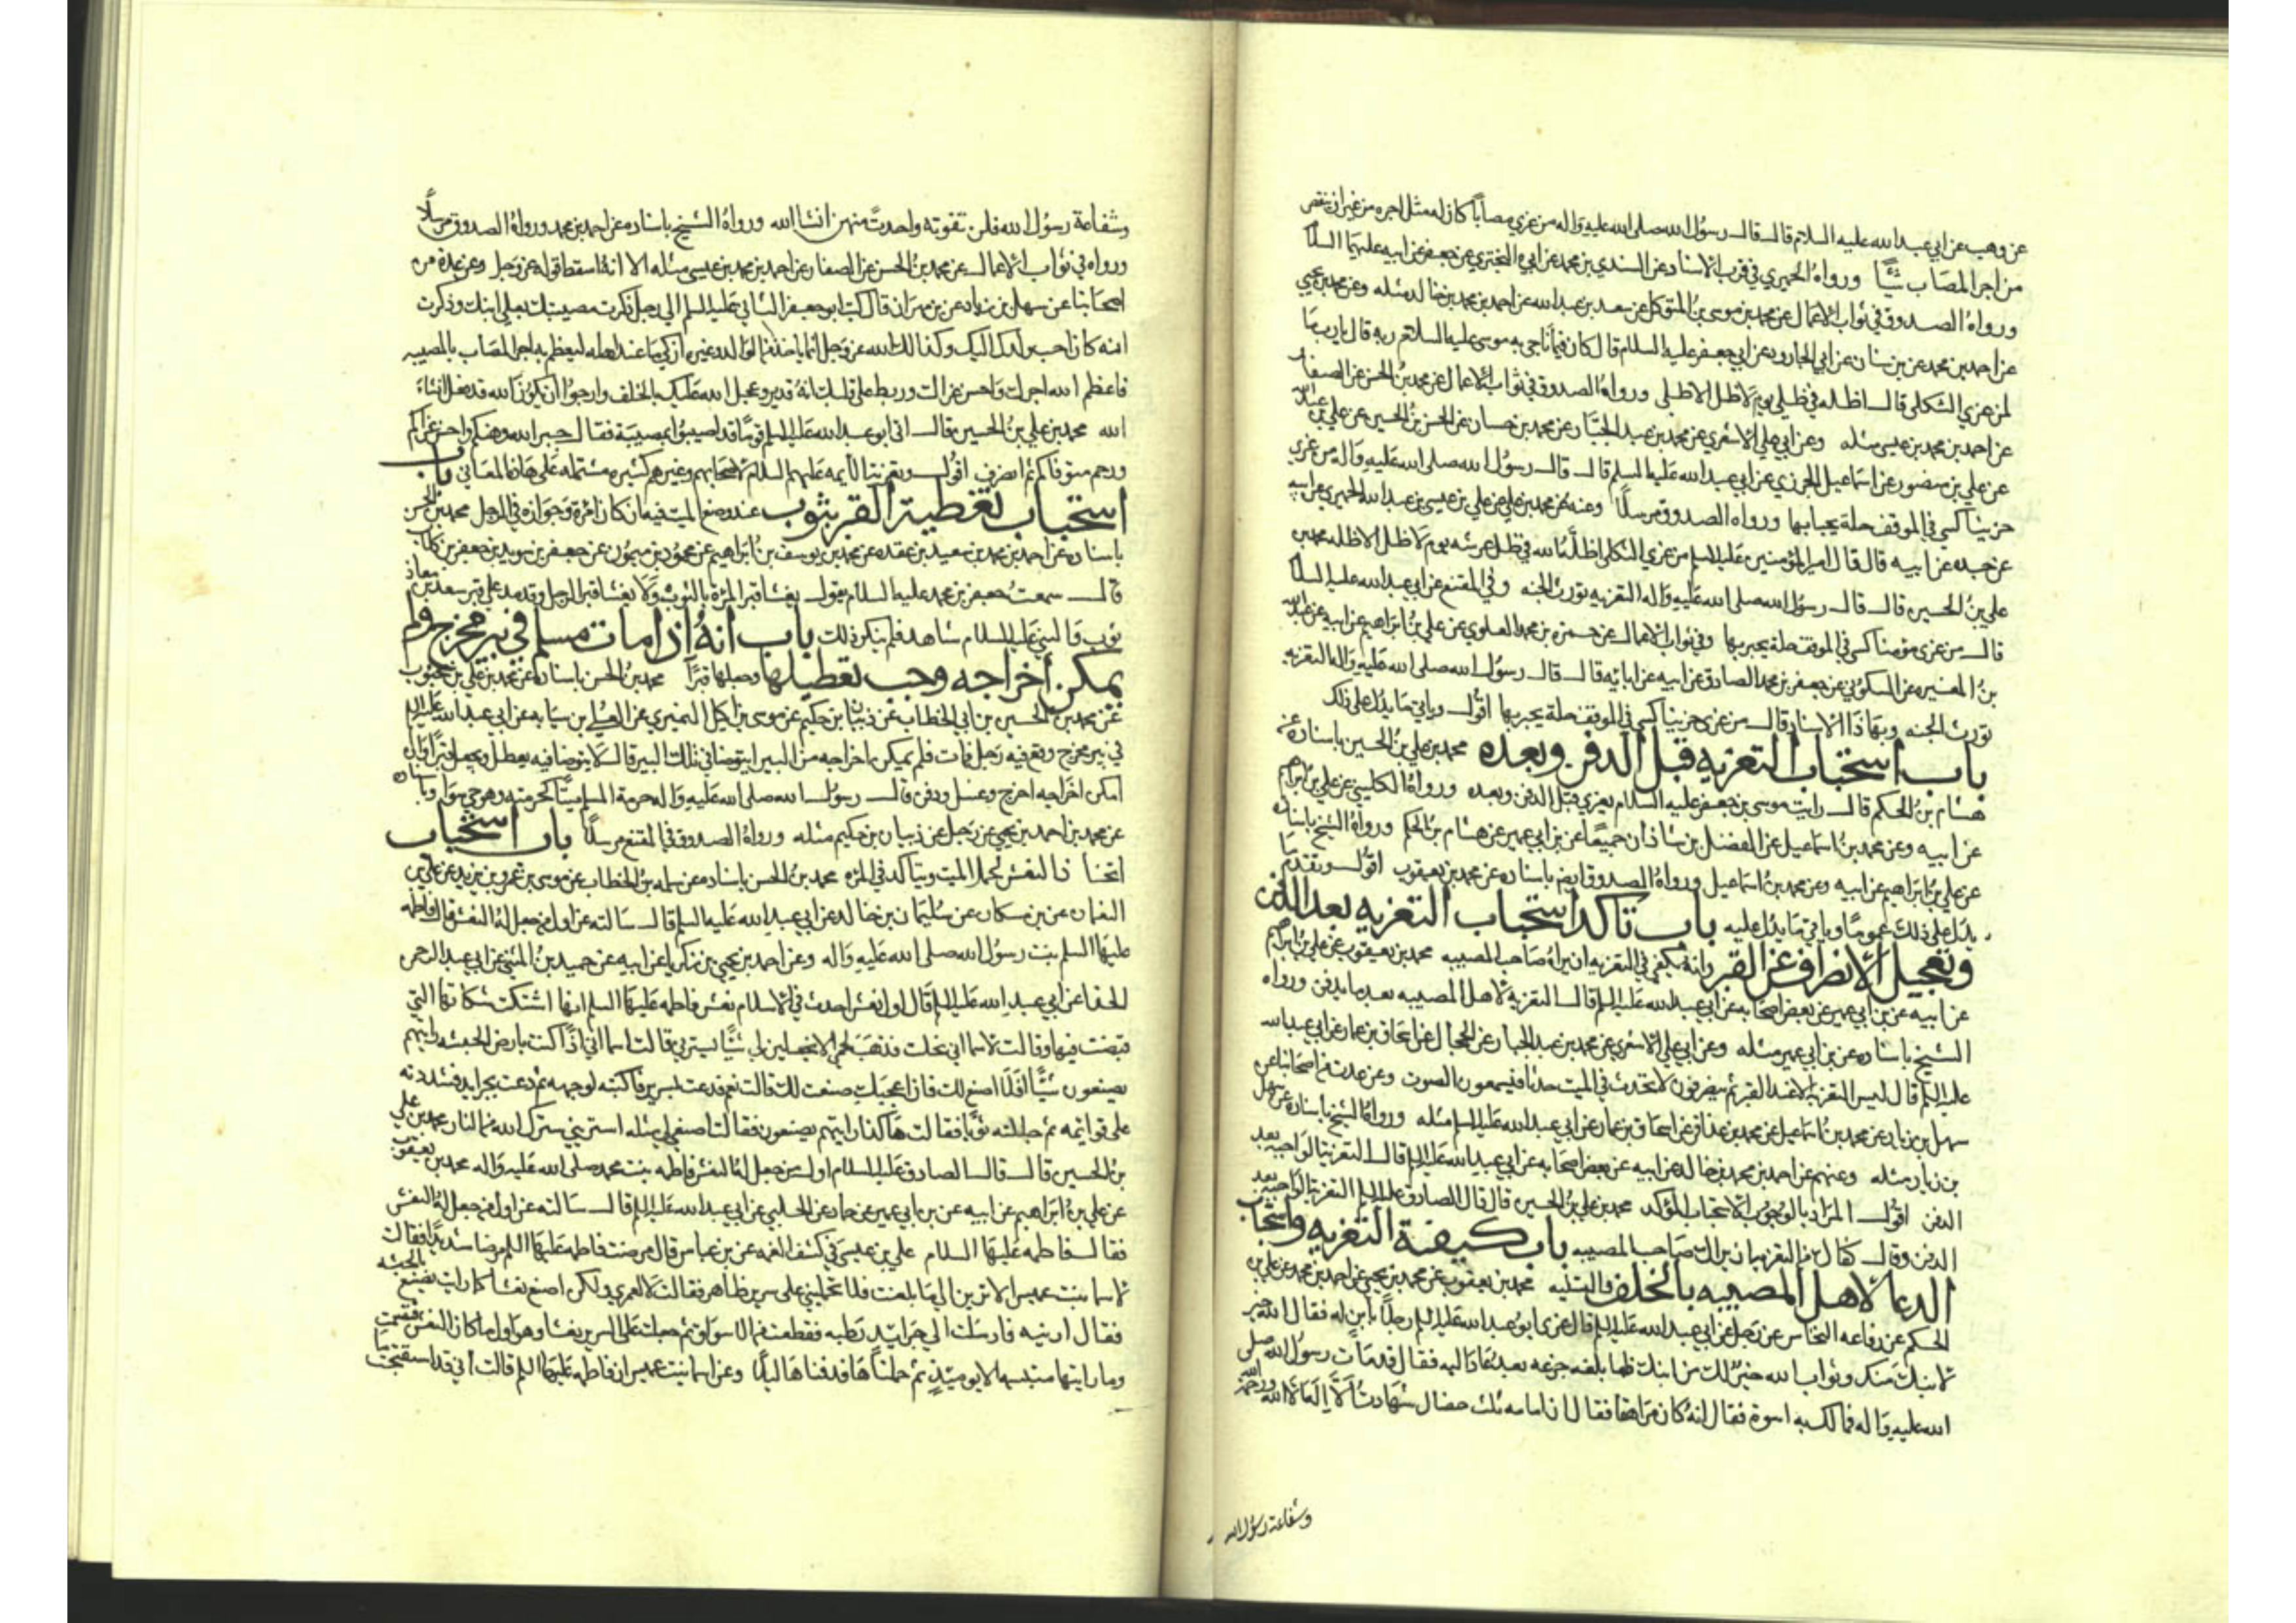 عن وهب عن ابي عبد الله عليه السلام قال قال رسول الله صلى الله عليه واله من عزى مصاباً كان له مثل اجره من غير ان ينتقص
من اجر المصاب شيئاً ورواه الحميري في قرب الاسناد عن السندي بن محمد عن ابي البختري عن جعفر عن ابيه عليهما السلام
ورواه الصدوق في ثواب الاعمال عن محمد بن موسى بن المتوكل عن سعد بن عبد الله عن احمد بن محمد بن خالد مثله وعن محمد بن يحيي
عن احمد بن محمد عن بن سنان عن ابي الجارود عن ابي جعفر عليه السلام قال كان فيما ناجى به موسى عليه السلام ربه قال يارب ما
لمن عزى الثكلى قال اظله في ظلي يوم لا ظل الا ظلي ورواه الصدوق في ثواب الاعمال عن محمد بن الحسن عن الصفار
عن احمد بن محمد بن عيسى مثله وعن ابي علي الاشعري عن محمد بن عبد الجبار عن محمد بن حسان عن الحسن بن الحسين عن علي بن عبد الله
عن علي بن منصور عن اسماعيل الجوزي عن ابي عبد الله عليه السلم قال قال رسول الله صلى الله عليه واله من عزى
حزينا كسى في الموقف حلة يحبا بها ورواه الصدوق مرسلاً وعنه عن محمد بن علي عن علي بن عيسى بن عبد الله الحميري عن ابيه
عن جده عن ابيه قال قال امير المؤمنين عليه السلم من عزى الثكلى اظله الله في ظل عرشه يوم لا ظل الا ظله محمد بن
علي بن الحسين قال قال رسول الله صلى الله عليه واله التعزيه تورث الجنه وفي المقنع عن ابي عبد الله عليه السلام
قال من عزى مؤمنا كسى في الموقف حلة يحبر بها وفي ثواب الاعمال عن حمزه بن محمد العلوي عن علي بن ابراهيم عن ابيه عن عبد الله
بن المغيره عن السكوني عن جعفر بن محمد الصادق عن ابيه عن ابائه قال قال رسول الله صلى الله عليه واله التعزيه
تورث الجنه وبهاذا الاسناد قال من عزى حزينا كسى في الموقف حلة يحبر بها اقول وياتي ما يدل على ذلك
باب استحباب التعزيه قبل الدفن وبعده محمد بن علي بن الحسين باسناده عن
هشام بن الحكم قال رايت موسى بن جعفر عليه السلام يعزي قبل الدفن وبعده ورواه الكليني عن علي بن ابراهيم
عن ابيه وعن محمد بن اسماعيل عن الفضل بن شاذان جميعاً عن بن ابي عمير عن هشام بن الحكم ورواه الشيخ باسناده
عن علي بن ابراهيم عن ابيه وعن محمد بن اسماعيل ورواه الصدوق ايضا باسناده عن محمد بن يعقوب اقول وتقدم ما
يدل على ذلك عموما وياتي ما يدل عليه باب تاكد استحباب التعزيه بعد الدفن
وتعجيل الانصراف عن القبر وانه يكفي في التعزيه ان يراه صاحب المصيبه محمد بن يعقوب عن علي بن ابراهيم
عن ابيه عن بن ابي عمير عن بعض اصحابه عن ابي عبد الله عليه السلم قال التعزيه لاهل المصيبه بعد ما يدفن ورواه
الشيخ باسناده عن بن ابي عمير مثله وعن ابي علي الاشعري عن محمد بن عبد الجبار عن الحجال عن اسحاق بن عمار عن ابي عبد الله
عليه السلم قال ليس التعزيه الا عند القبر ثم ينصرفون لا يحدث في الميت حدث فيسمعون الصوت وعن عدة من اصحابنا عن
سهل بن زياد عن محمد بن اسماعيل عن محمد بن عذافر عن اسحاق بن عمار عن ابي عبد الله عليه السلم مثله ورواه الشيخ باسناده عن سهل
بن زياد مثله وعنهم عن احمد بن محمد بن خالد عن ابيه عن بعض اصحابه عن ابي عبد الله عليه السلم قال التعزية الواجبه بعد
الدفن اقول المراد بالوجوب الاستحباب المؤكد محمد بن علي بن الحسين قال قال الصادق عليه السلم التعزية الواجبه بعد
الدفن وقال كفاك من التعزيه ان يراك صاحب المصيبه باب كيفية التعزيه واستحباب
الدعا لاهل المصيبه بالخلف والتسليه محمد بن يعقوب عن محمد بن يحيي عن احمد بن محمد عن علي بن
الحكم عن رفاعه النخاس عن رجل عن ابي عبد الله عليه السلم قال عزى ابو عبد الله عليه السلم رجلاً بابن له فقال الله خير
لابنك منك وثواب الله خير لك من ابنك فلما بلغه جزعه بعد عاد اليه فقال قد مات رسول الله صلى
الله عليه واله فما لك به اسوة فقال انه كان مراهقا فقال ان امامه ثلث خصال شهادة ان لا اله الا الله ورحمة الله
وشفاعة رسول الله
وشفاعة رسول الله فلن تفوته واحدت منهن انشا الله ورواه الشيخ باسناده عن احمد بن محمد ورواه الصدوق مرسلاً
ورواه في ثواب الاعمال عن محمد بن الحسن عن الصفار عن احمد بن محمد بن عيسى مثله الا انه اسقط قوله عز وجل وعن عدة من
اصحابنا عن سهل بن زياد عن بن مهران قال كتب ابو جعفر الثاني عليه السلم الى رجل ذكرت مصيبتك بعلي ابنك وذكرت
انه كان احب ولدك اليك وكذالك الله عز وجل انما ياخذ من الوالد وغيره ازكى ما عند اهله ليعظم به اجر المصاب بالمصيبه
فاعظم الله اجرك واحسن عزاك وربط على قلبك انه قدير وعجل الله عليك بالخلف وارجوا ان يكون الله قد فعل انشاء
الله محمد بن علي بن الحسين قال اتى ابو عبد الله عليه السلم قوماً قد اصيبوا بمصيبة فقال جبر الله وهنكم واحسن عزاكم
ورحم متوفاكم ثم انصرف اقول وتعزية الأيمه عليهم السلام لاصحابهم وغيرهم كثيره مشتمله على هاذه المعاني باب
استحباب تغطية القبر بثوب عند وضع الميت فيه ان كان امرة وجوازه في الرجل محمد بن الحسن
باسناده عن احمد بن محمد بن سعيد بن عقده عن محمد بن يوسف بن ابراهيم عن محمود بن ميمون عن جعفر بن سويد بن جعفر بن كلاب
قال سمعت جعفر بن محمد عليه السلام يقول يغشا قبر المرة بالثوب ولا يغشا قبر الرجل وقد مد على قبر سعد بن معاذ
ثوب والنبي عليه السلام شاهد فلم ينكر ذلك باب انه اذا مات مسلم في بير مخرج ولم
يمكن أخراجه وجب تعطيلها وجعلها قبراً محمد بن الحسن باسناده عن محمد بن علي بن محبوب
عن محمد بن الحسين بن ابي الخطاب عن ذبيان بن حكيم عن موسى بن اكيل النميري عن العلا بن سيابه عن ابي عبد الله عليه السلم
في بير مخرج وقع فيه رجل فمات فلم يمكن اخراجه من البير ايتوضا في تلك البير قال لا يتوضا فيه يعطل ويجعل قبراً وان
امكن اخراجه اخرج وغسل ودفن قال رسول الله صلى الله عليه واله حرمة المسلم ميتاً كحرمته وهو حي سوا وباسناده
عن محمد بن احمد بن يحيي عن رجل عن ذبيان بن حكيم مثله ورواه الصدوق في المقنع مرسلاً باب استحباب
اتخاذ النعش لحمل الميت ويتاكد في المره محمد بن الحسن باسناده عن سلمه بن الخطاب عن موسى بن عمر بن يزيد عن علي بن
النعمان عن بن مسكان عن سليمان بن خالد عن ابي عبد الله عليه السلم قال سالته عن اول من جعل له النعش قال فاطمه
عليها السلم بنت رسول الله صلى الله عليه واله وعن احمد بن يحيي بن زكريا عن ابيه عن حميد بن المثنى عن ابي عبد الرحمن
الحذا عن ابي عبد الله عليه السلم قال اول نعش احدث في الاسلام نعش فاطمه عليها السلم انها اشتكت شكاتها التي
قبضت فيها وقالت لاسما اني نحلت فذهب لحمي الا تجعلين لي شيئاً يسترني قالت اسما اني اذ كنت بارض الحبشه رايتهم
يصنعون شيئاً افلا اصنع لك فان اعجبك صنعت لك قالت نعم فدعت بسرير فاكبته لوجهه ثم دعت بجرايد فشددته
على قوائمه ثم جللته ثوباً فقالت هاكذا رايتهم يصنعون فقالت اصنعي لي مثله استريني سترك الله من النار محمد بن علي
بن الحسين قال قال الصادق عليه السلام اول من جعل له النعش فاطمه بنت محمد صلى الله عليه واله محمد بن يعقوب
عن علي بن ابراهيم عن ابيه عن بن ابي عمير عن حماد عن الحلبي عن ابي عبد الله عليه السلم قال سالته عن اول من جعل له النعش
فقال فاطمه عليها السلام علي بن عيسى في كشف الغمه عن بن عباس قال مرضت فاطمه عليها السلم مرضا شديداً فقالت
لاسما بنت عميس الا ترين الى ما بلغت فلا تحمليني على سرير ظاهر فقالت لا لعمري ولكن اصنع نعشا كما رايت يصنع بالحبشه
فقال ارنيه فارسلت الى جرائد رطبه فقطعت من الاسواق ثم جعلت على السرير نعشا وهو اول ما كان النعش فتبسمت
وما رايتها متبسمه الا يومئذ ثم حملناها فدفناها ليلاً وعن اسما بنت عميس ان فاطمه عليها السلم قالت أني قد استقبحت ما